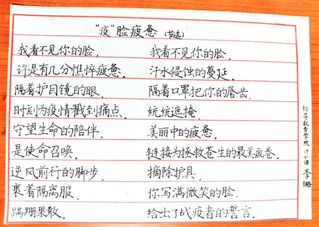 “疫”脸疲惫
我看不见你的脸,
我看不见你的脸,
许是有几分憔悴疲惫.
汗水侵蚀的蔓延
隔着护目镜的眼.
隔着口罩把你的唇齿
时刻为疫情戳到痛点.
统统遮掩.
守望生命的陪伴.
美丽中的疲惫.
是使命召唤.
链接为拯救苍生的最美画卷.
逆风前行的脚步.
摘除护具.
裹着隔离服.
你写满微笑的脸.
踽踽果敢.
给出了战疫者的誓言.